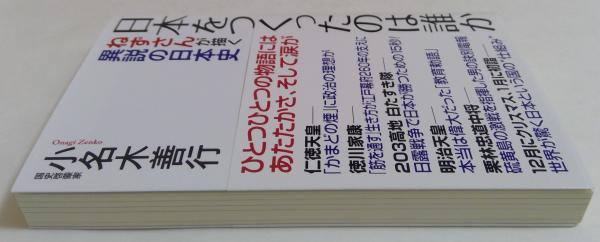 日本をつくったのは誰か
ねずさんが描く
異説の日本史
Onagi Zenko
小名木善行
国史啓蒙家
ひとつひとつの物語には
あたたかさ、そして涙が
仁徳天皇
「かまどの煙」に政治の理想が
徳川家康
「筋を通す」生き方が江戸幕府260年の支えに
203高地 白たすき隊
日露戦争で日本が勝つための「15秒」
明治天皇
本当は偉大だった「教育勅語」
栗林忠道中将
硫黄島の激戦を指揮した男の訣別電報
12月にクリスマス、1月に初詣
世界が驚く日本という国の"仕組み"